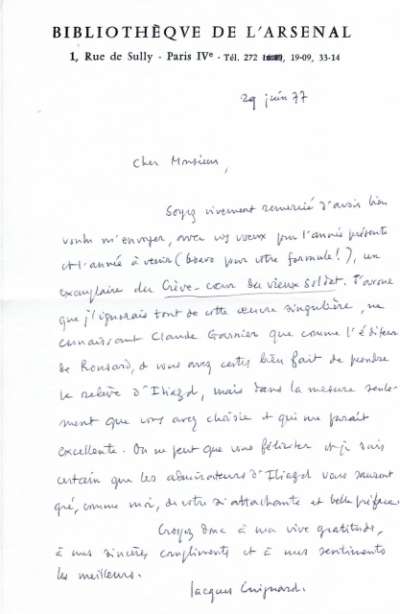 BIBLIOTHÈQVE DE L'ARSENAL
1, Rue de Sully - Paris IVe - Tél. 272 , 19-09, 33-14
29 juin 77
Cher Monsieur,
Soyez vivement remercié d'avoir bien
voulu m'envoyer, avec vos vœux pour l'année présente
et l'année à venir (bravo pour votre formule!), un
exemplaire du Crève-cœur du vieux soldat. J'avoue
que j'ignorais tout de cette œuvre singulière, ne
connaissant Claude Garnier que comme l'éditeur
de Ronsard, et vous avez certes bien fait de prendre
la relève d'Iliazd, mais dans la mesure seule-
ment que vous avez choisie et qui me paraît
excellente. On ne peut que vous féliciter et je suis
certain que les admirateurs d'Iliazd vous sauront
gré, comme moi, de votre si attachante et belle préface.
Croyez donc à ma vive gratitude,
à mes sincères compliments et à mes sentiments
les meilleurs.
Jacques Guignard.